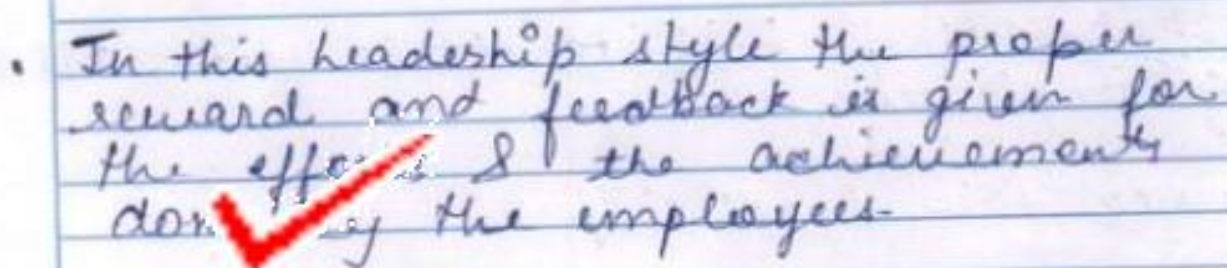 • In this leadeship style the proper
reward and feedback is given for
the & the achievements
the employees.